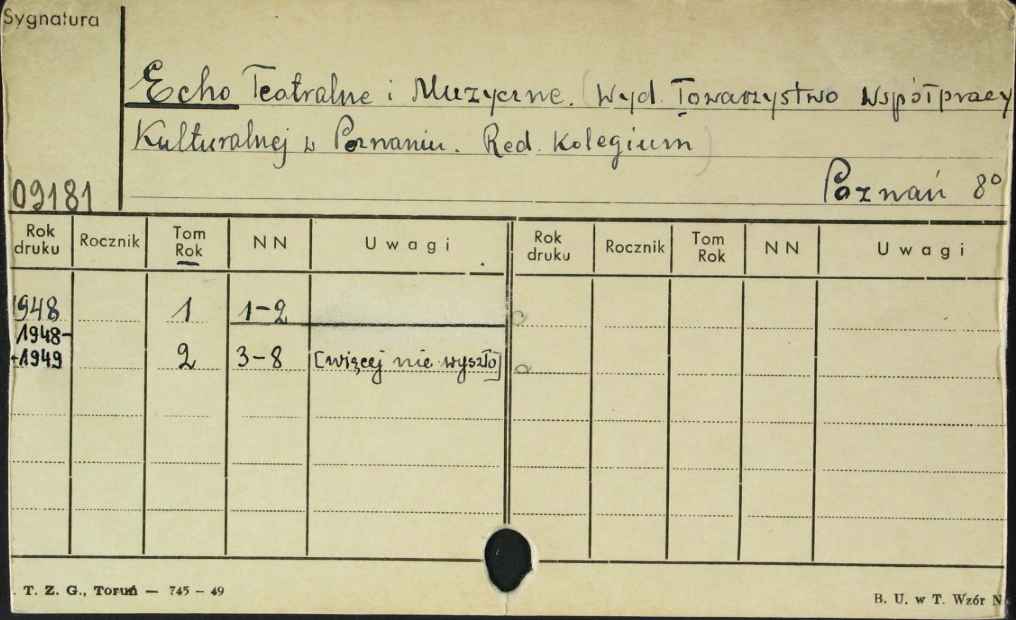 Sygnatura
Echo Teatralne i Muzyczne. (Wyd. Towarzystwo Współpracy
Kulturalnej w Poznaniu. Red. Kolegium)
Poznań 8°
09181
Rok druku Rocznik Tom Rok NN Uwagi Rok druku Rocznik Tom Rok NN Uwagi
1948 1 1-2
1948-
-1949 2 3-8 [więcej nie wyszło]
. T. Z. G., Toruń — 745 - 49
B. U. w T. Wzór N